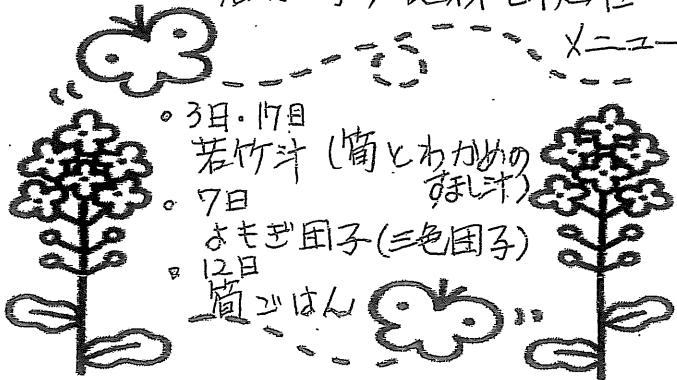 メニュー
○3日・17日
若竹汁(筍とわかめの
すまし汁)
○7日
よもぎ団子(三色団子)
○12日
筍ごはん